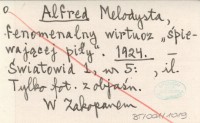 o Alfred Melodysta,
fenomenalny wirtuoz „śpie-
wającej piły". 1924. –
Światowid 1, nr 5: , il.
Tylko fot. z objaśn.
W Zakopanem